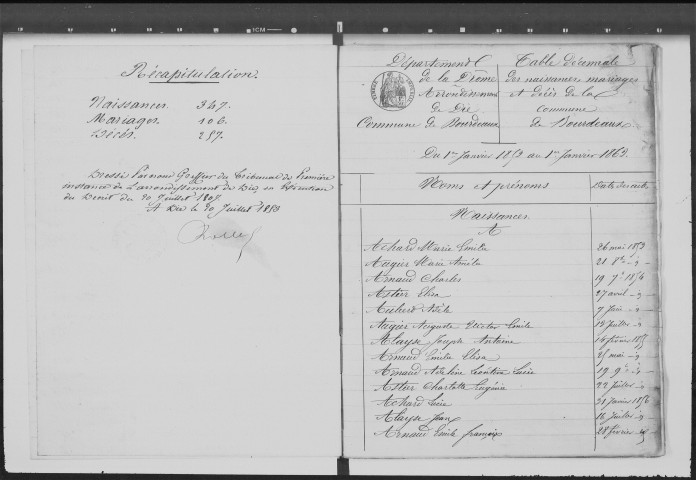 1CM
Récapitulation.
Naissances. 347.
Mariages. 106.
Décès. 257.
Dressé Par nous Greffier du Tribunal de Première
instance de L'arrondissement de Die, en Exécution
du Décret du 20 Juillet 1807.
A Die le 20 Juillet 1853
Département
de la Drôme
Arrondissement
de Die
Commune de Bourdeaux
Table décennale
des naissances, mariages
et décès de la
commune
de Bourdeaux
Du 1er Janvier 1853 au 1er Janvier 1863.
Noms et prénoms
Date des actes
Naissances
A
Achard Marie Emilie 26 mai 1853
Augier Marie Amélie 21 8bre
Arnaud Charles 19 7bre 1854
Astier Elisa 27 avril
Aubert Adèle 7 Juin
Augier Auguste Emile 18 Juillet
Alayse Joseph Antoine 14 février 1855
Arnaud Emilie Elisa 25 mai
Arnaud Adeline Léontine Lucie 19 9bre
Astier Charlotte Eugénie 22 Juillet
Achard 31 Janvier 1856
Alayse Jean 16 Juillet
Arnaud Emile françois 28 février